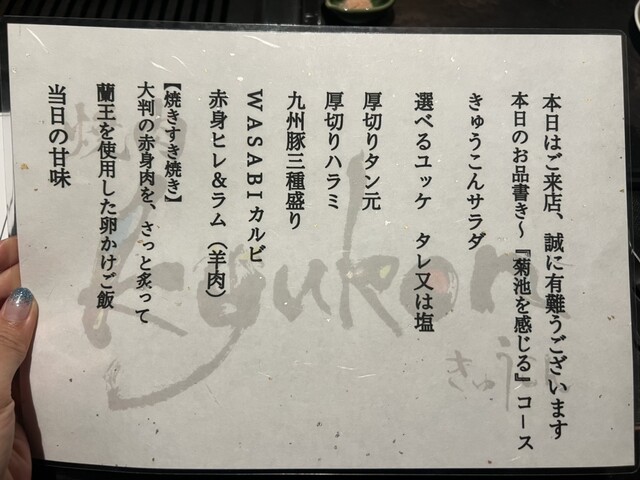 本日はご来店、誠に有難うございます
本日のお品書き～『菊池を感じる』コース
きゅうこんサラダ
選べるユッケ　タレ又は塩
厚切りタン元
厚切りハラミ
九州豚三種盛り
WASABIカルビ
赤身ヒレ＆ラム（羊肉）
【焼きすき焼き】
大判の赤身肉を、さっと炙って
蘭王を使用した卵かけご飯
当日の甘味